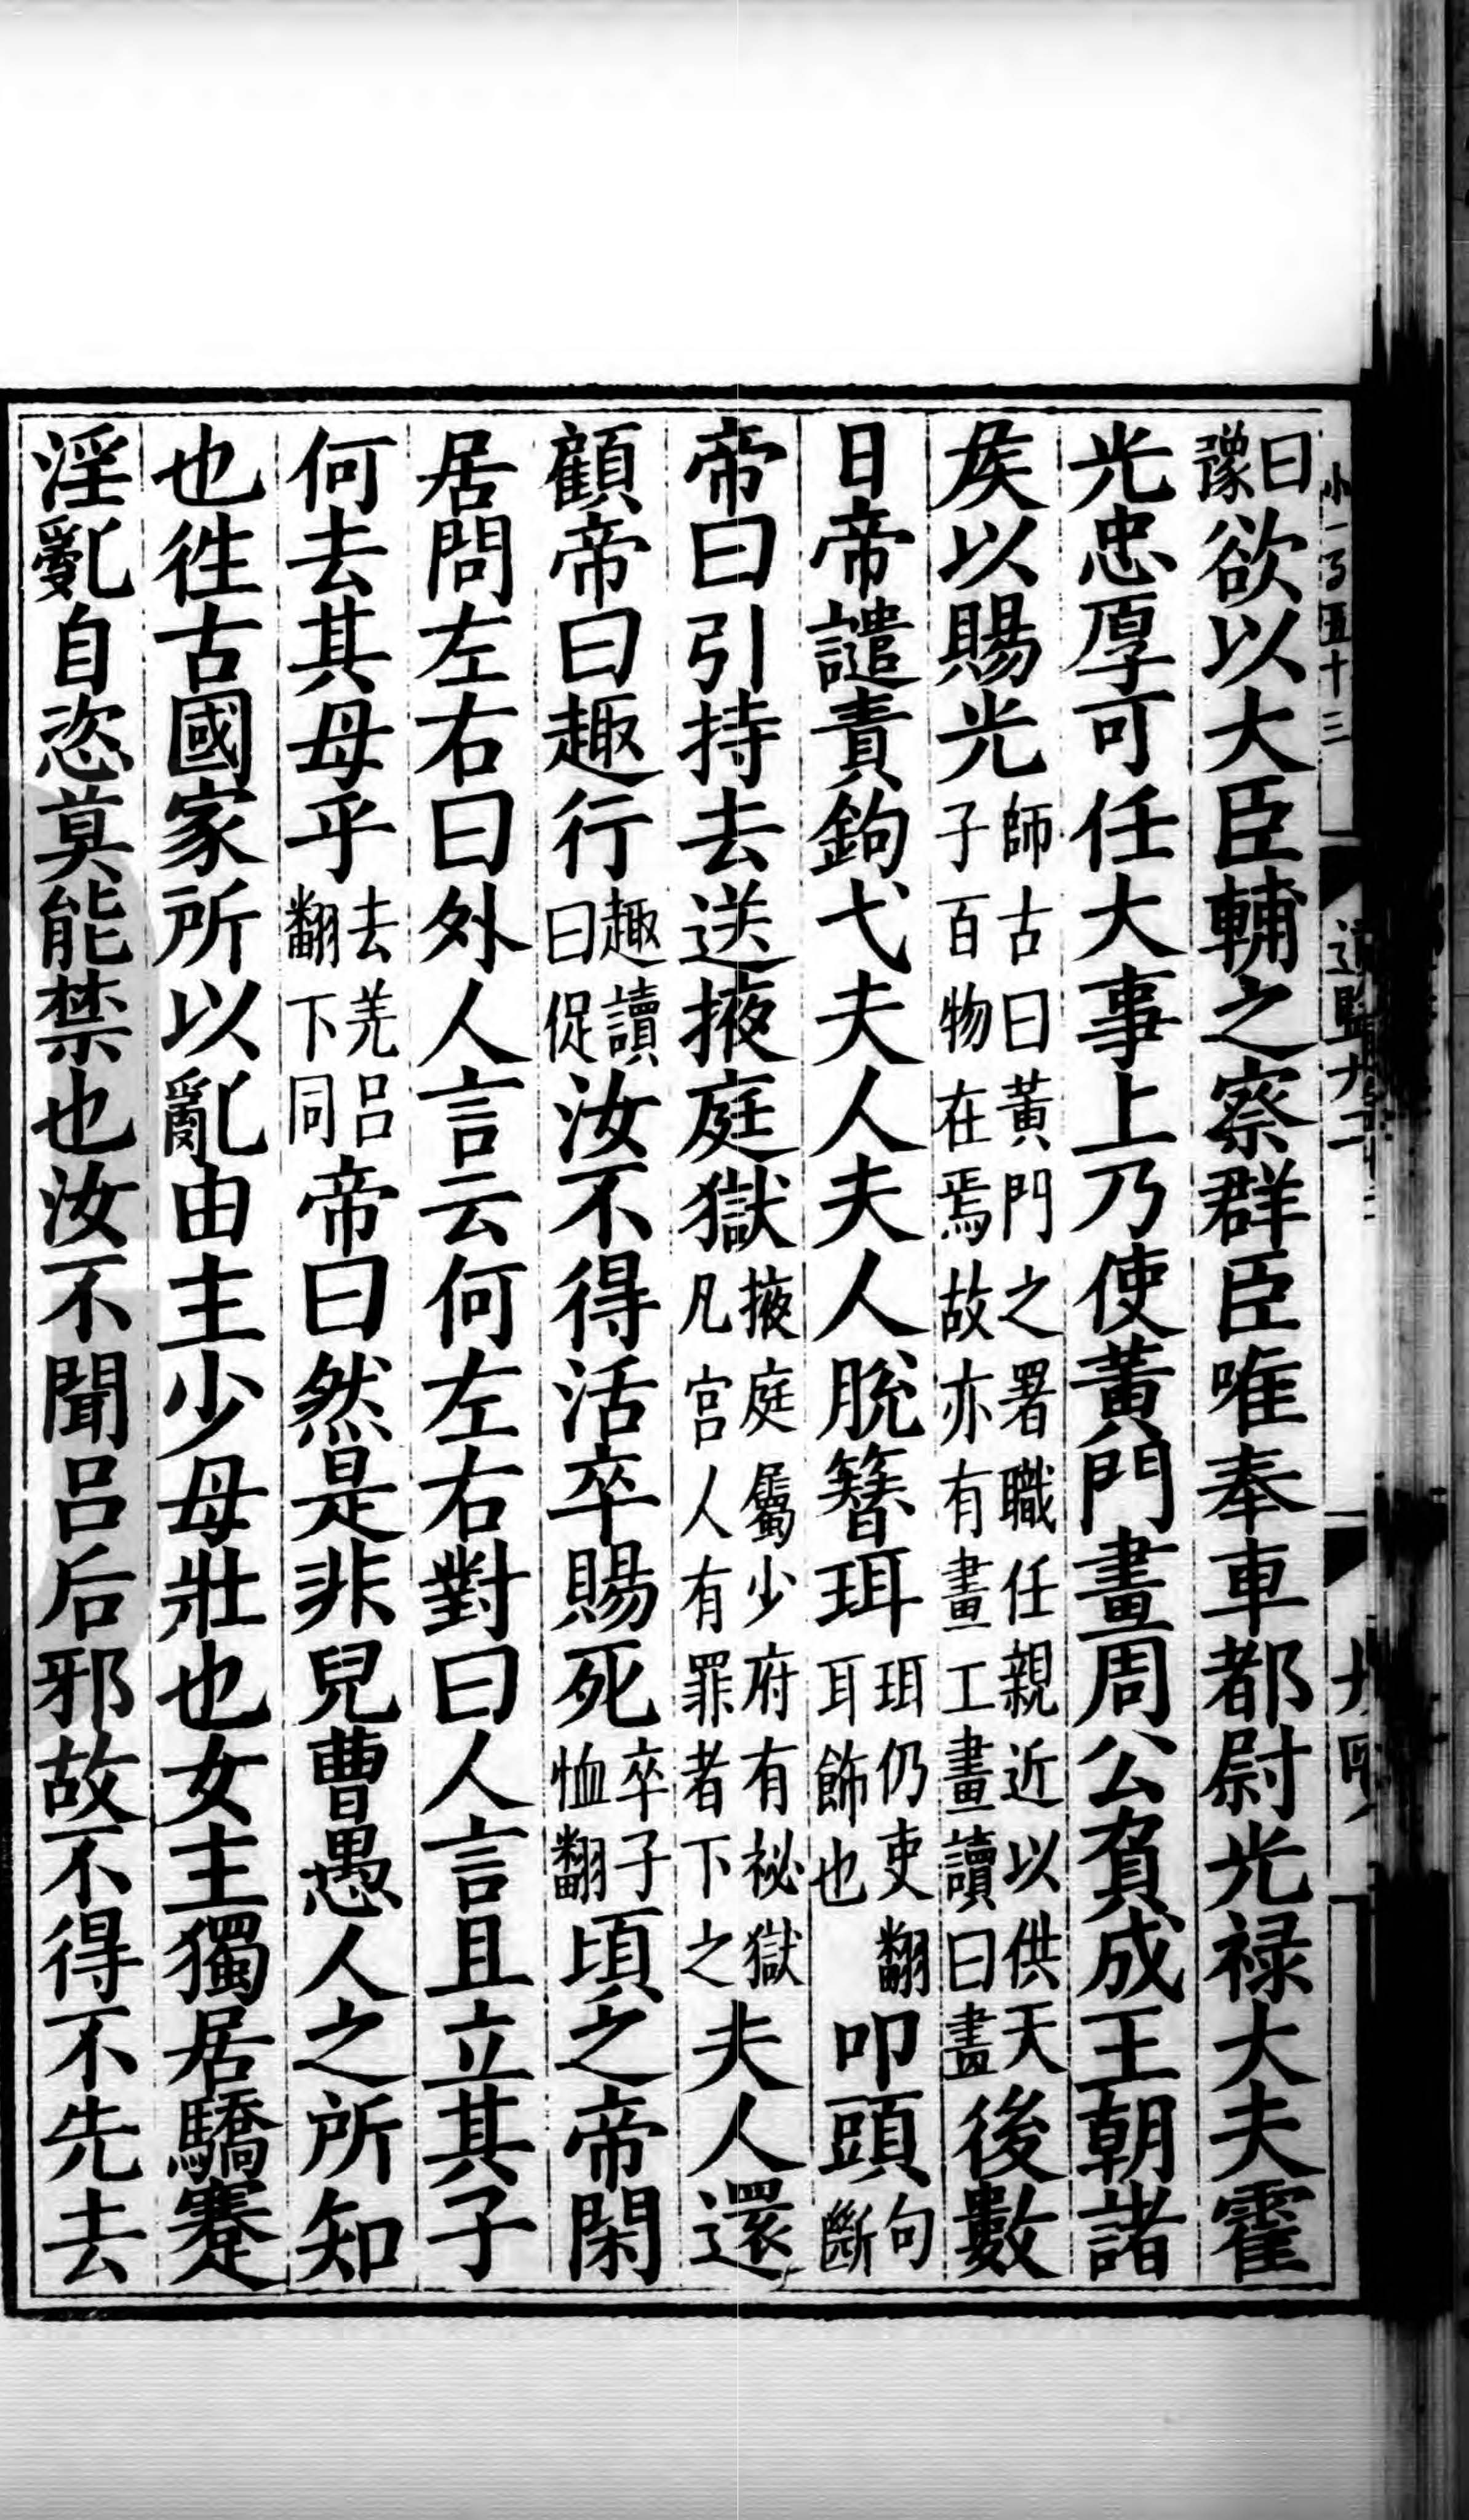 曰豫欲以大臣輔之察群臣唯奉車都尉光禄大夫霍
光忠厚可任大事上乃使黃門畫周公負成王朝諸
矦以賜光師古曰黃門之署職任親近以供天子百物在焉故亦有畫工畫讀曰畫後數
日帝譴責鉤弋夫人夫人脫簪珥珥仍吏翻耳飾也叩頭句斷
帝曰引持去送掖庭獄掖庭屬少府有祕獄凡宮人有罪者下之夫人還
顧帝曰趣行趣讀曰促汝不得活卒賜死卒子恤翻頃之帝閑
居問左右曰外人言云何左右對曰人言且立其子
何去其母乎去羌呂翻下同帝曰然是非兒曹愚人之所知
也徃古國家所以亂由主少母壯也女主獨居驕蹇
淫亂自恣莫能禁也汝不聞呂后邪故不得不先去